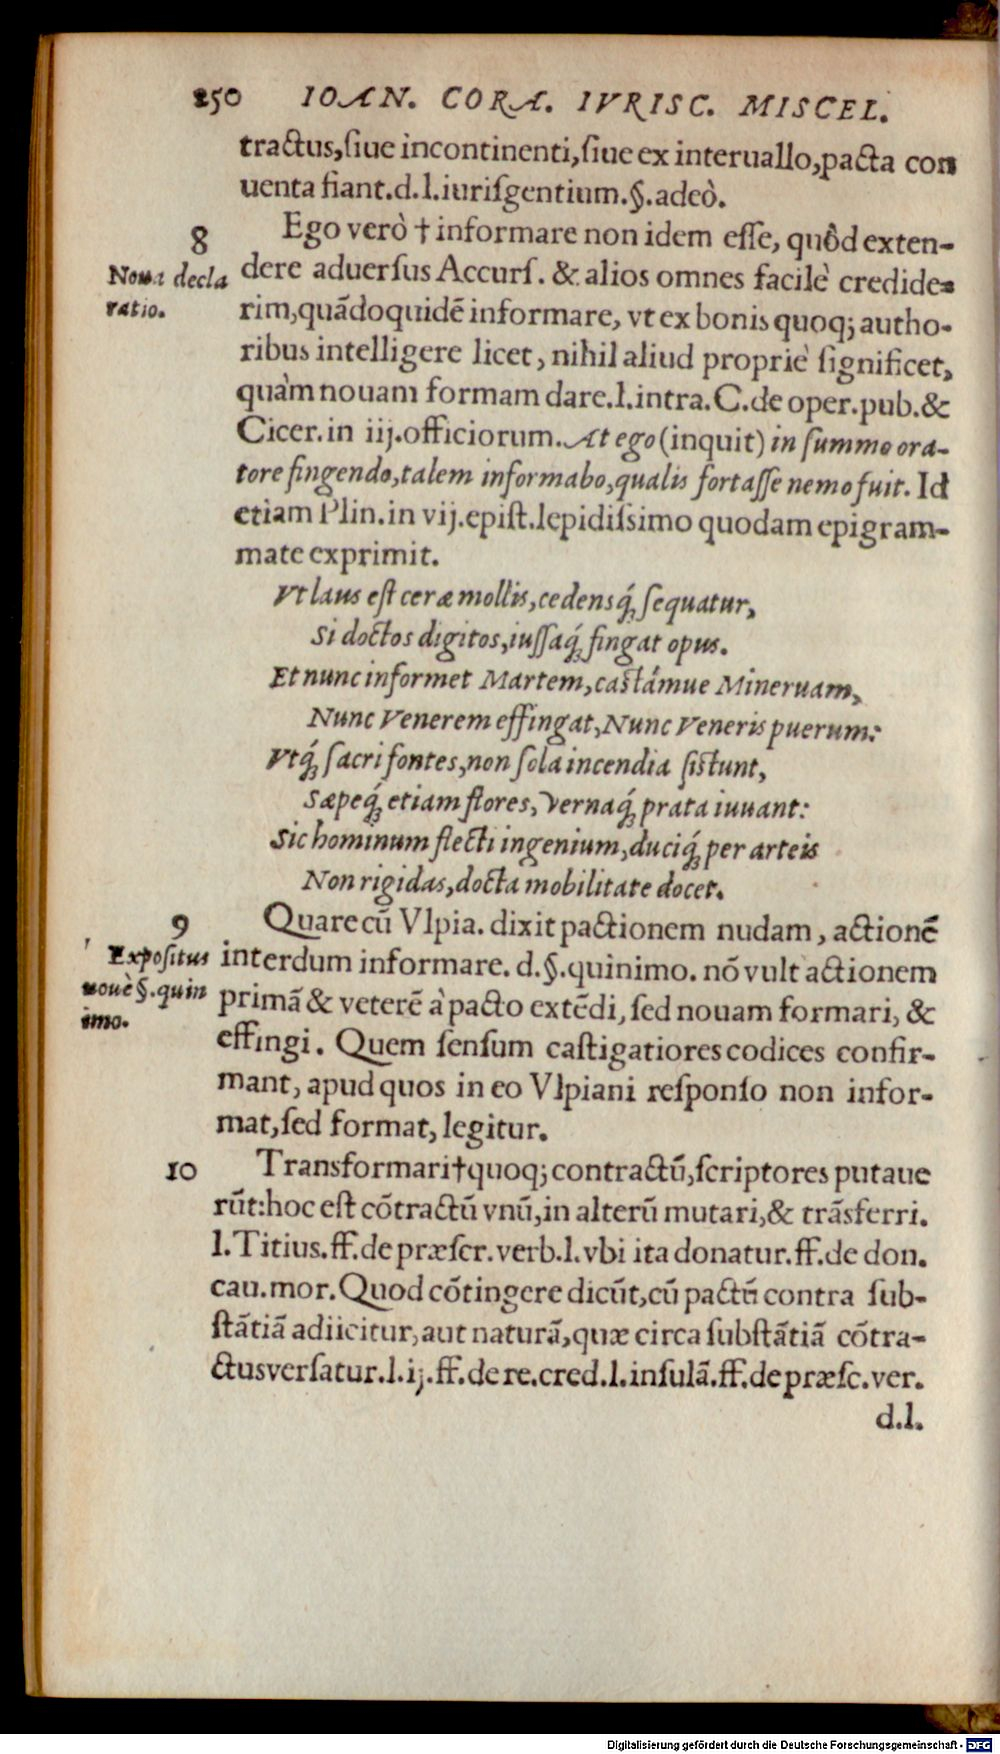 250 IOAN. CORA. IVRISC. MISCEL.
tractus,ſiue incontinenti,ſiue ex interuallo,pacta con
uenta fiant.d.l.iuriſgentium.§.adeò.
8
Noua decla
ratio.
Ego verò † informare non idem eſſe, quòd exten-
dere aduerſus Accurſ. & alios omnes facilè credide-
rim,quãdoquidẽ informare, vt ex bonis quoq; autho-
ribus intelligere licet, nihil aliud propriè ſignificet,
quàm nouam formam dare.l.intra.C.de oper.pub.&
Cicer.in iij.officiorum.At ego (inquit) in ſummo ora-
tore fingendo,talem informabo,qualis fortaſſe nemo fuit. Id
etiam Plin.in vij.epiſt.lepidiſsimo quodam epigram-
mate exprimit.
Vt laus eſt ceræ mollis,cedensq́; ſequatur,
Si doctos digitos,iuſſaq́; fingat opus.
Et nunc informet Martem,castámue Mineruam,
Nunc Venerem effingat,Nunc Veneris puerum:
Vtq́; ſacri fontes,non ſola incendia ſiſtunt,
Sæpeq́; etiam flores, Vernaq́; prata iuuant:
Sic hominum flecti ingenium,duciq́; per arteis
Non rigidas,docta mobilitate docet.
9
Expoſitus
nouè §.quin
imo.
Quare cũ Vlpia. dixit pactionem nudam, actionẽ
interdum informare. d.§.quinimo. nõ vult actionem
primã & veterẽ à pacto extẽdi, ſed nouam formari, &
effingi. Quem ſenſum caſtigatiores codices confir-
mant, apud quos in eo Vlpiani reſponſo non infor-
mat,ſed format, legitur.
10 Transformari†quoq; contractũ,ſcriptores putaue
rũt:hoc eſt cõtractũ vnũ,in alterũ mutari,& trãsferri.
l.Titius.ff.de præſcr.verb.l.vbi ita donatur.ff.de don.
cau.mor.Quod cõtingere dicũt,cũ pactũ contra ſub-
ſtãtiã adiicitur,aut naturã,quæ circa ſubſtãtiã cõtra-
ctus verſatur.l.ij.ff.de re.cred.l.inſulã.ff.de præſc.ver.
d.l.
Digitalisierung gefördert durch die Deutsche Forschungsgemeinschaft - DFG